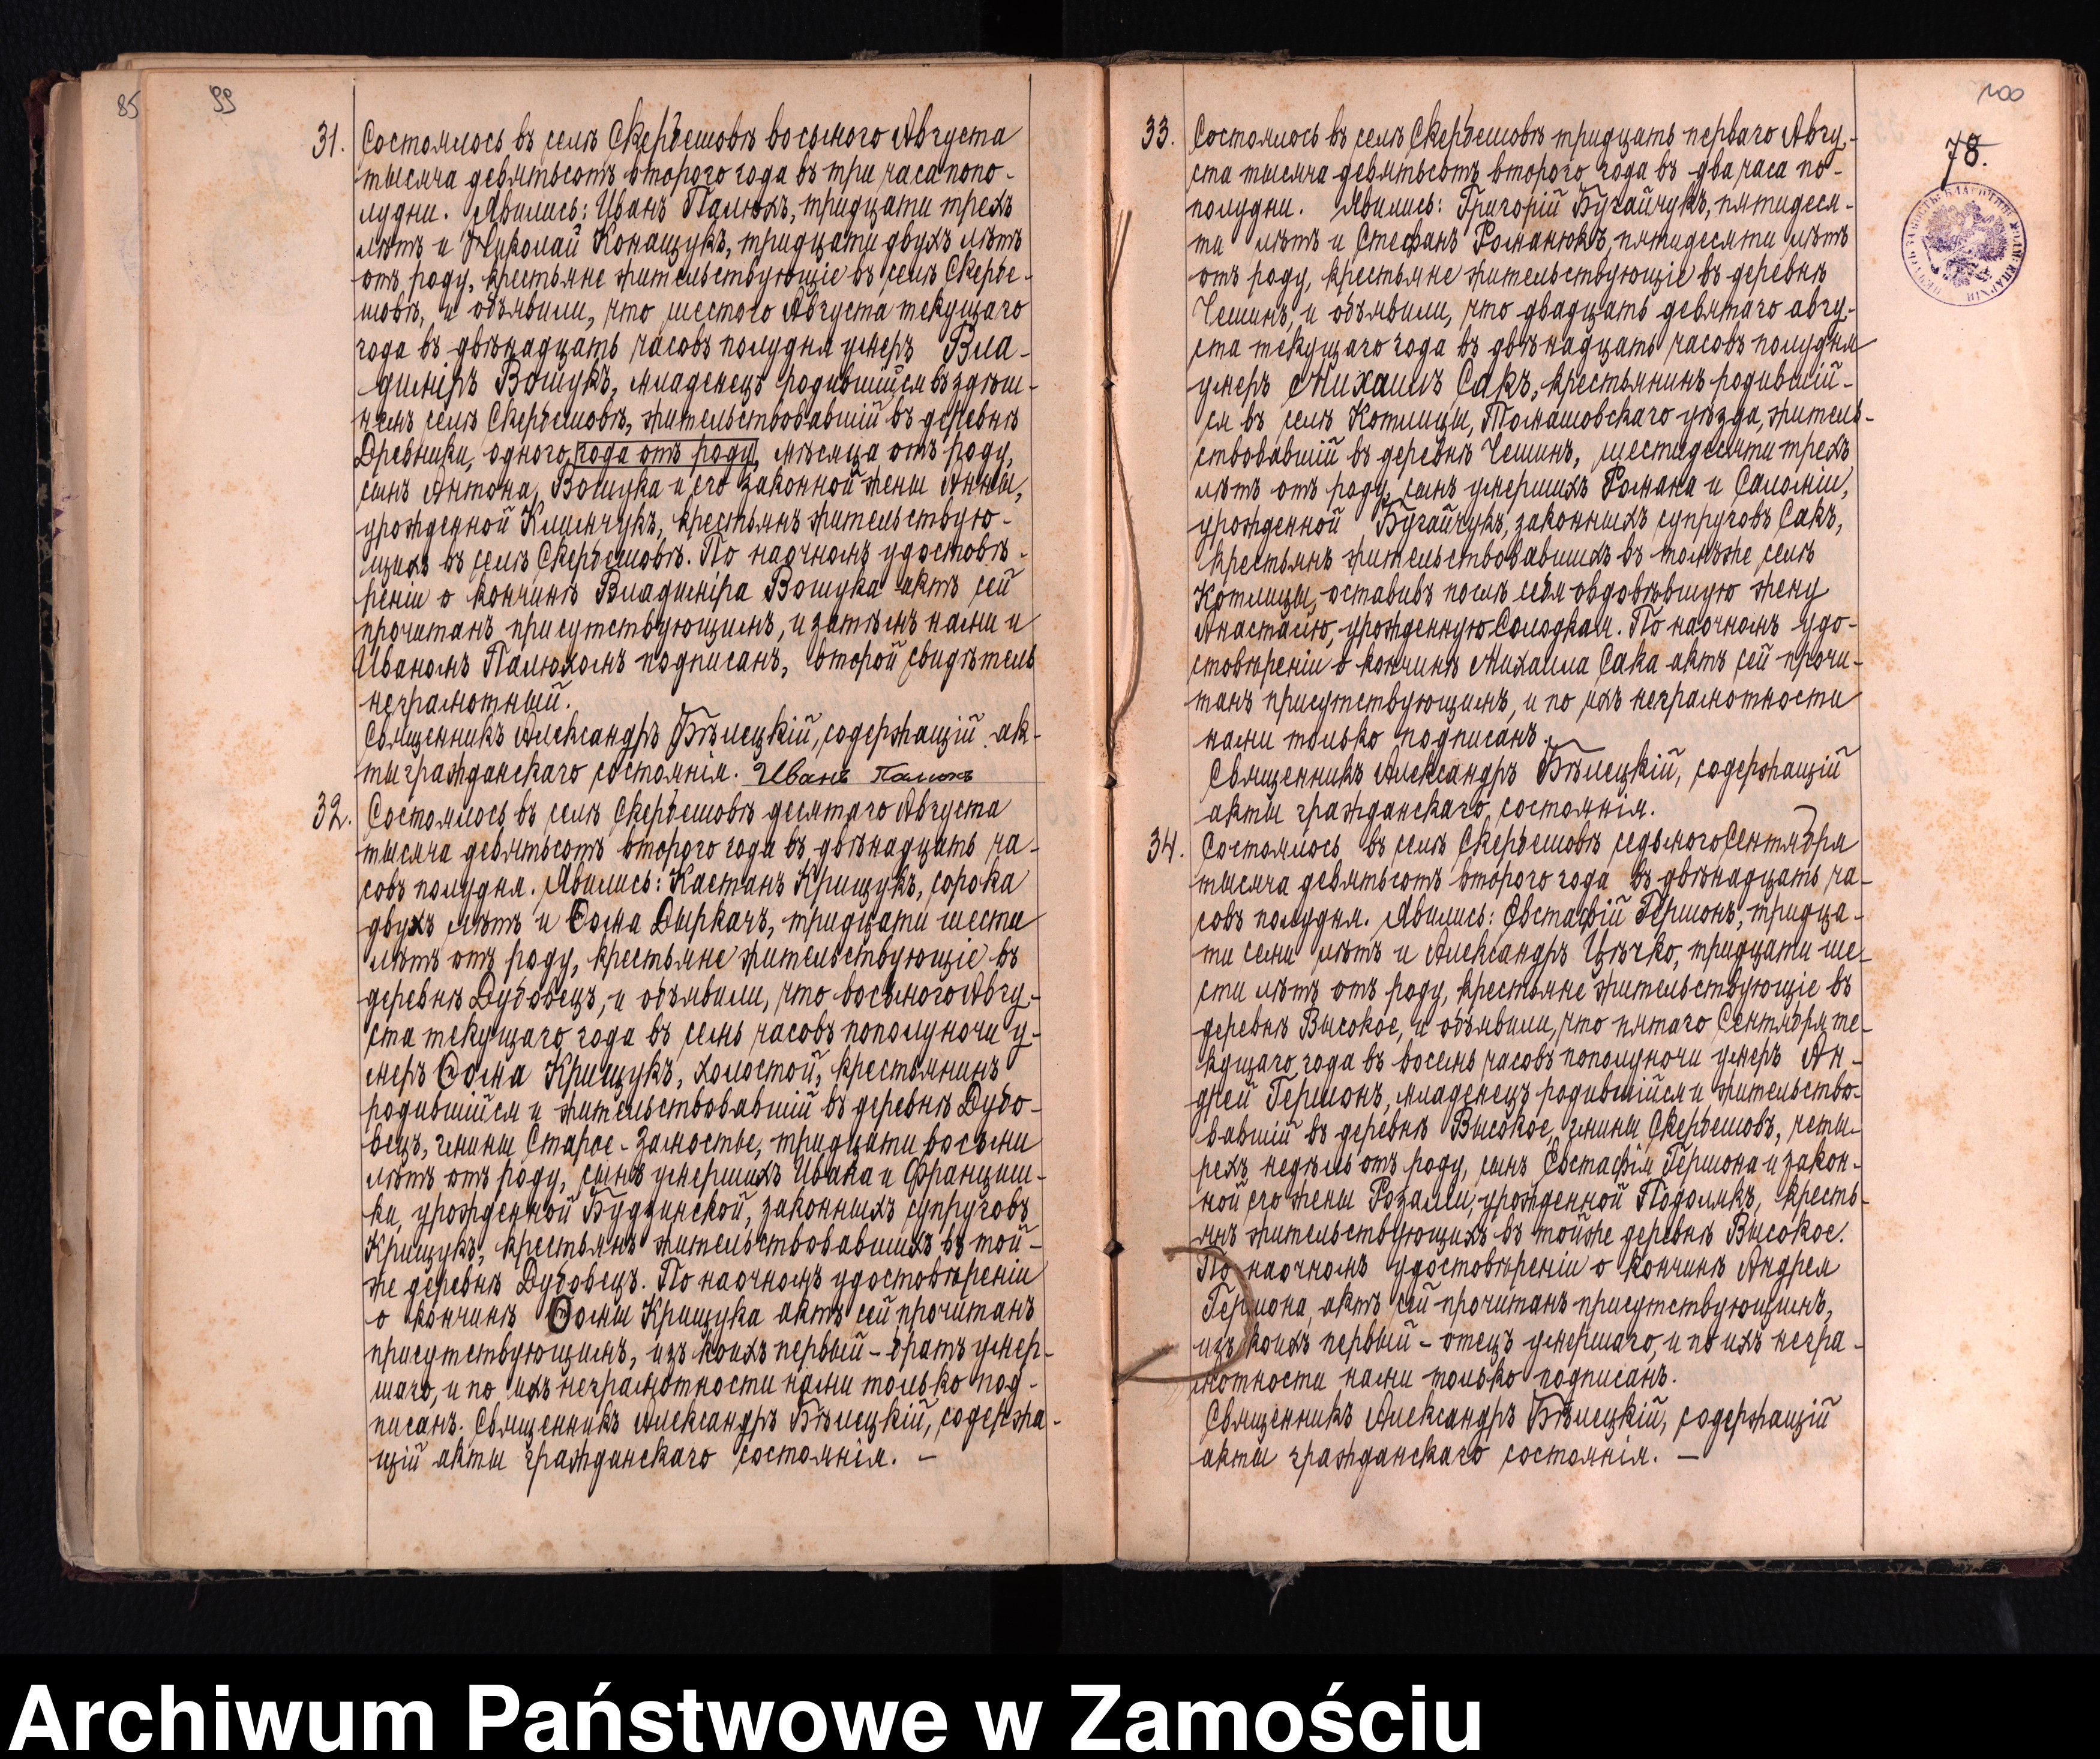 85
99
31. Состоялось въ селѣ Скербешовѣ восьмого Августа
тысяча девятьсотъ второго года въ три часа попо-
лудни. Явились: Иванъ Палюхъ, тридцати трехъ
лѣтъ и Николай Конащукъ, тридцати двухъ лѣтъ
отъ роду, крестьяне жительствующіе въ селѣ Скербе-
шовѣ, и объявили, что шестого Августа текущаго
года въ двѣнадцать часовъ полудня умеръ Вла-
диміръ Вошукъ, младенецъ родившійся въ здѣш-
немъ селѣ Скербешовѣ, жительствовавшій въ деревнѣ
Древники, одного года отъ роду, мѣсяца отъ роду,
сынъ Антона Вошука и его законной жены Анны,
урожденной Климчукъ, крестьянъ жительствую-
щихъ въ селѣ Скербешовѣ. По наочномъ удостовѣ-
реніи о кончинѣ Владиміра Вошука актъ сей
прочитанъ присутствующимъ, и затѣмъ нами и
Иваномъ Палюхомъ подписанъ, второй свидѣтель
неграмотный.
Священникъ Александръ Бѣлецкій, содержащій ак-
ты гражданскаго состоянія. Иванъ Палюхъ
32. Состоялось въ селѣ Скербешовѣ десятаго Августа
тысяча девятьсотъ второго года въ двѣнадцать ча-
совъ полудня. Явились: Каетанъ Крищукъ, сорока
двухъ лѣтъ и Ѳома Дыркачъ, тридцати шести
лѣтъ отъ роду, крестьяне жительствующіе въ
деревнѣ Дубовецъ, и объявили, что восьмого Авгу-
ста текущаго года въ семь часовъ пополуночи у-
меръ Ѳома Крищукъ, холостой, крестьянинъ
родившійся и жительствовавшій въ деревнѣ Дубо-
вецъ, гмины Старое-Замостье, тридцати восьми
лѣтъ отъ роду, сынъ умершихъ Ивана и Францыш-
ки, урожденной Будзинской, законныхъ супруговъ
Крищукъ, крестьянъ жительствовавшихъ въ той-
же деревнѣ Дубовецъ. По наочномъ удостовѣреніи
о кончинѣ Ѳомы Крищука актъ сей прочитанъ
присутствующимъ, изъ коихъ первый - братъ умер-
шаго, и по ихъ неграмотности нами только под-
писанъ. Священникъ Александръ Бѣлецкій, содержа-
щій акты гражданскаго состоянія. —
100
78.
33. Состоялось въ селѣ Скербешовѣ тридцать перваго Авгу-
ста тысяча девятьсотъ второго года въ два часа по-
полудни. Явились: Григорій Бугайчукъ, пятидеся-
ти лѣтъ и Стефанъ Романюкъ, пятидесяти лѣтъ
отъ роду, крестьяне жительствующіе въ деревнѣ
Чешинъ, и объявили, что двадцать девятаго авгу-
ста текущаго года въ двѣнадцать часовъ полудня
умеръ Михаилъ Сакъ, крестьянинъ родившій-
ся въ селѣ Котлицы, Томашовскаго уѣзда, житель-
ствовавшій въ деревнѣ Чешинъ, шестидесяти трехъ
лѣтъ отъ роду, сынъ умершихъ Романа и Саломіи,
урожденной Бугайчукъ, законныхъ супруговъ Сакъ,
крестьянъ жительствовавшихъ въ томъже селѣ
Котлицы, оставивъ послѣ себя овдовѣвшую жену
Анастасію, урожденную Солодкая. По наочномъ удо-
стовѣреніи о кончинѣ Михаила Сака актъ сей прочи-
танъ присутствующимъ, и по ихъ неграмотности
нами только подписанъ.
Священникъ Александръ Бѣлецкій, содержащій
акты гражданскаго состоянія.
34. Состоялось въ селѣ Скербешовѣ седьмого Сентября
тысяча девятьсотъ второго года въ двѣнадцать ча-
совъ полудня. Явились: Евстафій Гершонъ, тридца-
ти семи лѣтъ и Александръ Цѣчко, тридцати ше-
сти лѣтъ отъ роду, крестьяне жительствующіе въ
деревнѣ Высокое, и объявили, что пятаго Сентября те-
кущаго года въ восемь часовъ пополуночи умеръ Ан-
дрей Гершонъ, младенецъ родившійся и жительство-
вавшій въ деревнѣ Высокое, гмины Скербешовъ, четы-
рехъ недѣль отъ роду, сынъ Евстафія Гершона и закон-
ной его жены Розаліи, урожденной Подолякъ, кресть-
янъ жительствующихъ въ тойже деревнѣ Высокое.
По наочномъ удостовѣреніи о кончинѣ Андрея
Гершона, актъ сей прочитанъ присутствующимъ,
изъ коихъ первый - отецъ умершаго, и по ихъ негра-
мотности нами только подписанъ.
Священникъ Александръ Бѣлецкій, содержащій
акты гражданскаго состоянія. —
Archiwum Państwowe w Zamościu